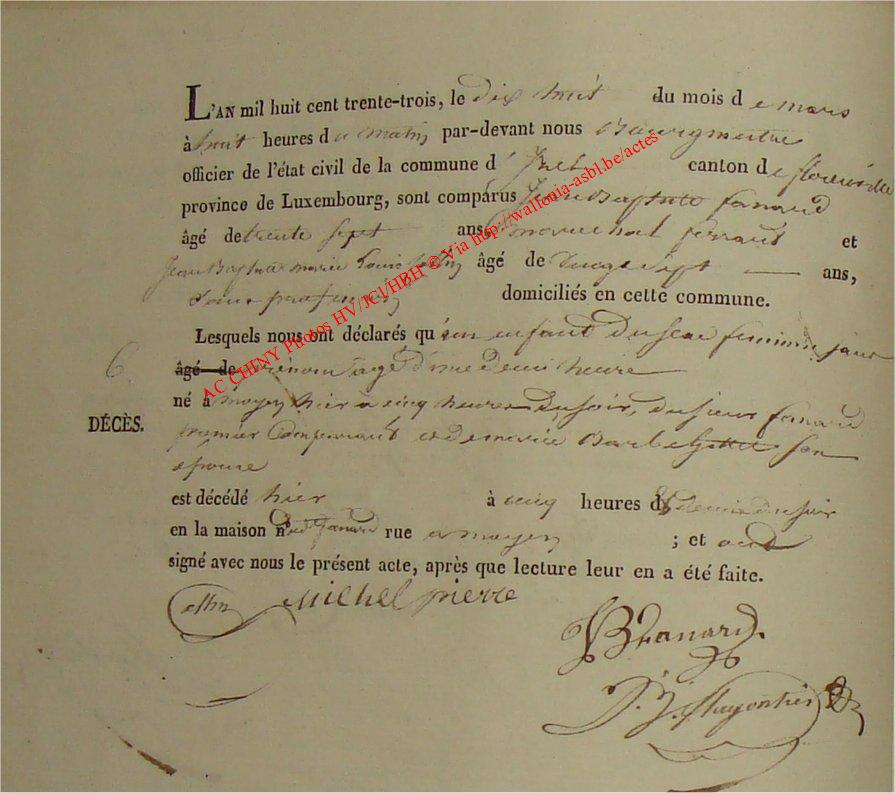 L'AN mil huit cent trente-trois, le dix huit du mois de mars
à huit heures du matin par-devant nous Bourgmestre
officier de l'état civil de la commune d' canton de florenville
province de Luxembourg, sont comparus Jean Baptiste fanard
âgé de trente sept ans, marechal ferrant et
Jean Baptiste marie Louis âgé de vingt sept ans,
domiciliés en cette commune.
Lesquels nous ont déclarés qu'un enfant du sexe feminin sans
6.
âgé de prénom agé d'une demi heure
né à moyen hier a cinq heures du soir, du sieur fanard
DÉCÈS.
premier Comparant et de marie Barbe son
épouse
est décédé hier à cinq heures & demie du soir
en la maison n° dud. fanard rue a moyen ; et ont
signé avec nous le présent acte, après que lecture leur en a été faite.
Michel pierre
JB fanard
AC CHINY Photos HV/JCI/HBH © Via http://wallonia-asbl.be/actes